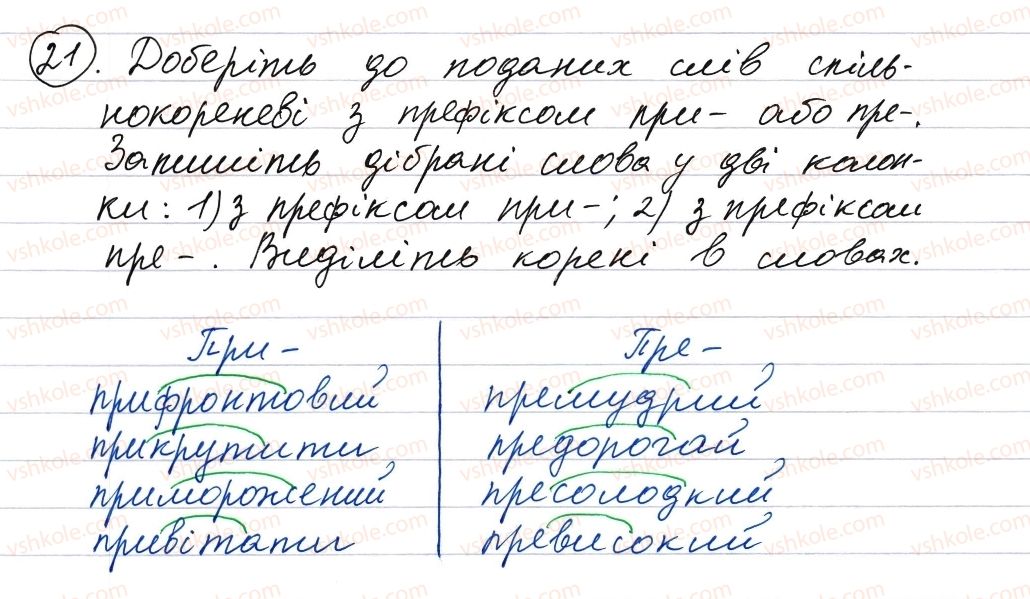 21. Доберіть до поданих слів спіль-
нокореневі з префіксом при- або пре-.
Запишіть дібрані слова у дві колон-
ки: 1) з префіксом при-; 2) з префіксом
пре-. Виділіть корені в словах.
При-
прифронтовий
прикрутити
приморожений
привітати
Пре-
премудрий
предорогий
пресолодкий
превисокий
vshkole.com